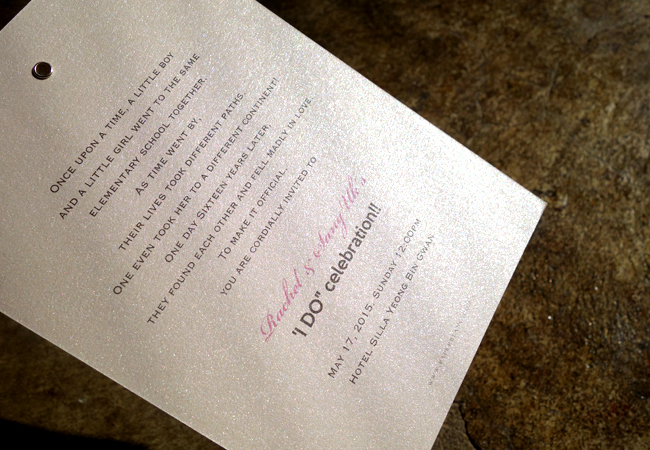 Once upon a time, a little boy
and a little girl went to the same
elementary school together.
As time went by,
their lives took different paths.
One even took her to a different continent!
One day Sixteen years later,
they found each other and fell madly in love.
To make it official...
you are cordially invited to
Rachel & SangUk's
"I DO" celebration!!
May 17, 2015. Sunday 12:00pm
Hotel Silla Yeong Bin Gwan